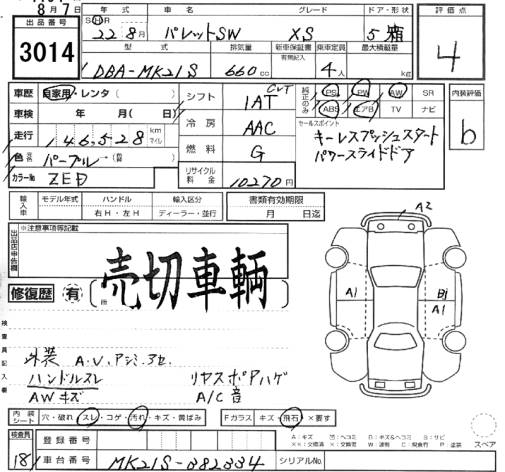 8月7
年式 車名 グレード ドア・形状 評価点
出品番号
SHR 22 8月 パレットSW XS 5 箱
3014
型式 排気量 新車保証書 乗車定員 最大積載量
有無記入
4
DBA-MK21S 660cc 4人 kg
車歴 自家用・レンタ シフト CVT 1AT 純正のみ PS PW AW SR 内装評価
ABS エアB TV ナビ
車検 年 月(日) 冷房 AAC セールスポイント b
走行 146,528 km マイル キーレスプッシュスタート
色 パープル 燃料 G パワースライドドア
カラーNo ZED リサイクル料金 10270円
輸入車 モデル年式 ハンドル 輸入区分 書類有効期限
右H・左H ディーラー・並行 月 日迄
A2
※注意事項等記載
売切車輌
A1 B1
修復歴 有
A1
検査員記入
外装 A.V.アシミ.ヨセ.
ハンドルスレ リヤスポアハゲ
AWキズ A/C音
内装シート 穴・破れ・スレ・コゲ・汚れ・キズ・黄ばみ Fガラス キズ・飛石・×要す
A:キズ
スペア
検査員 登録番号
181 車台番号 MK21S-382334 シリアルNo.